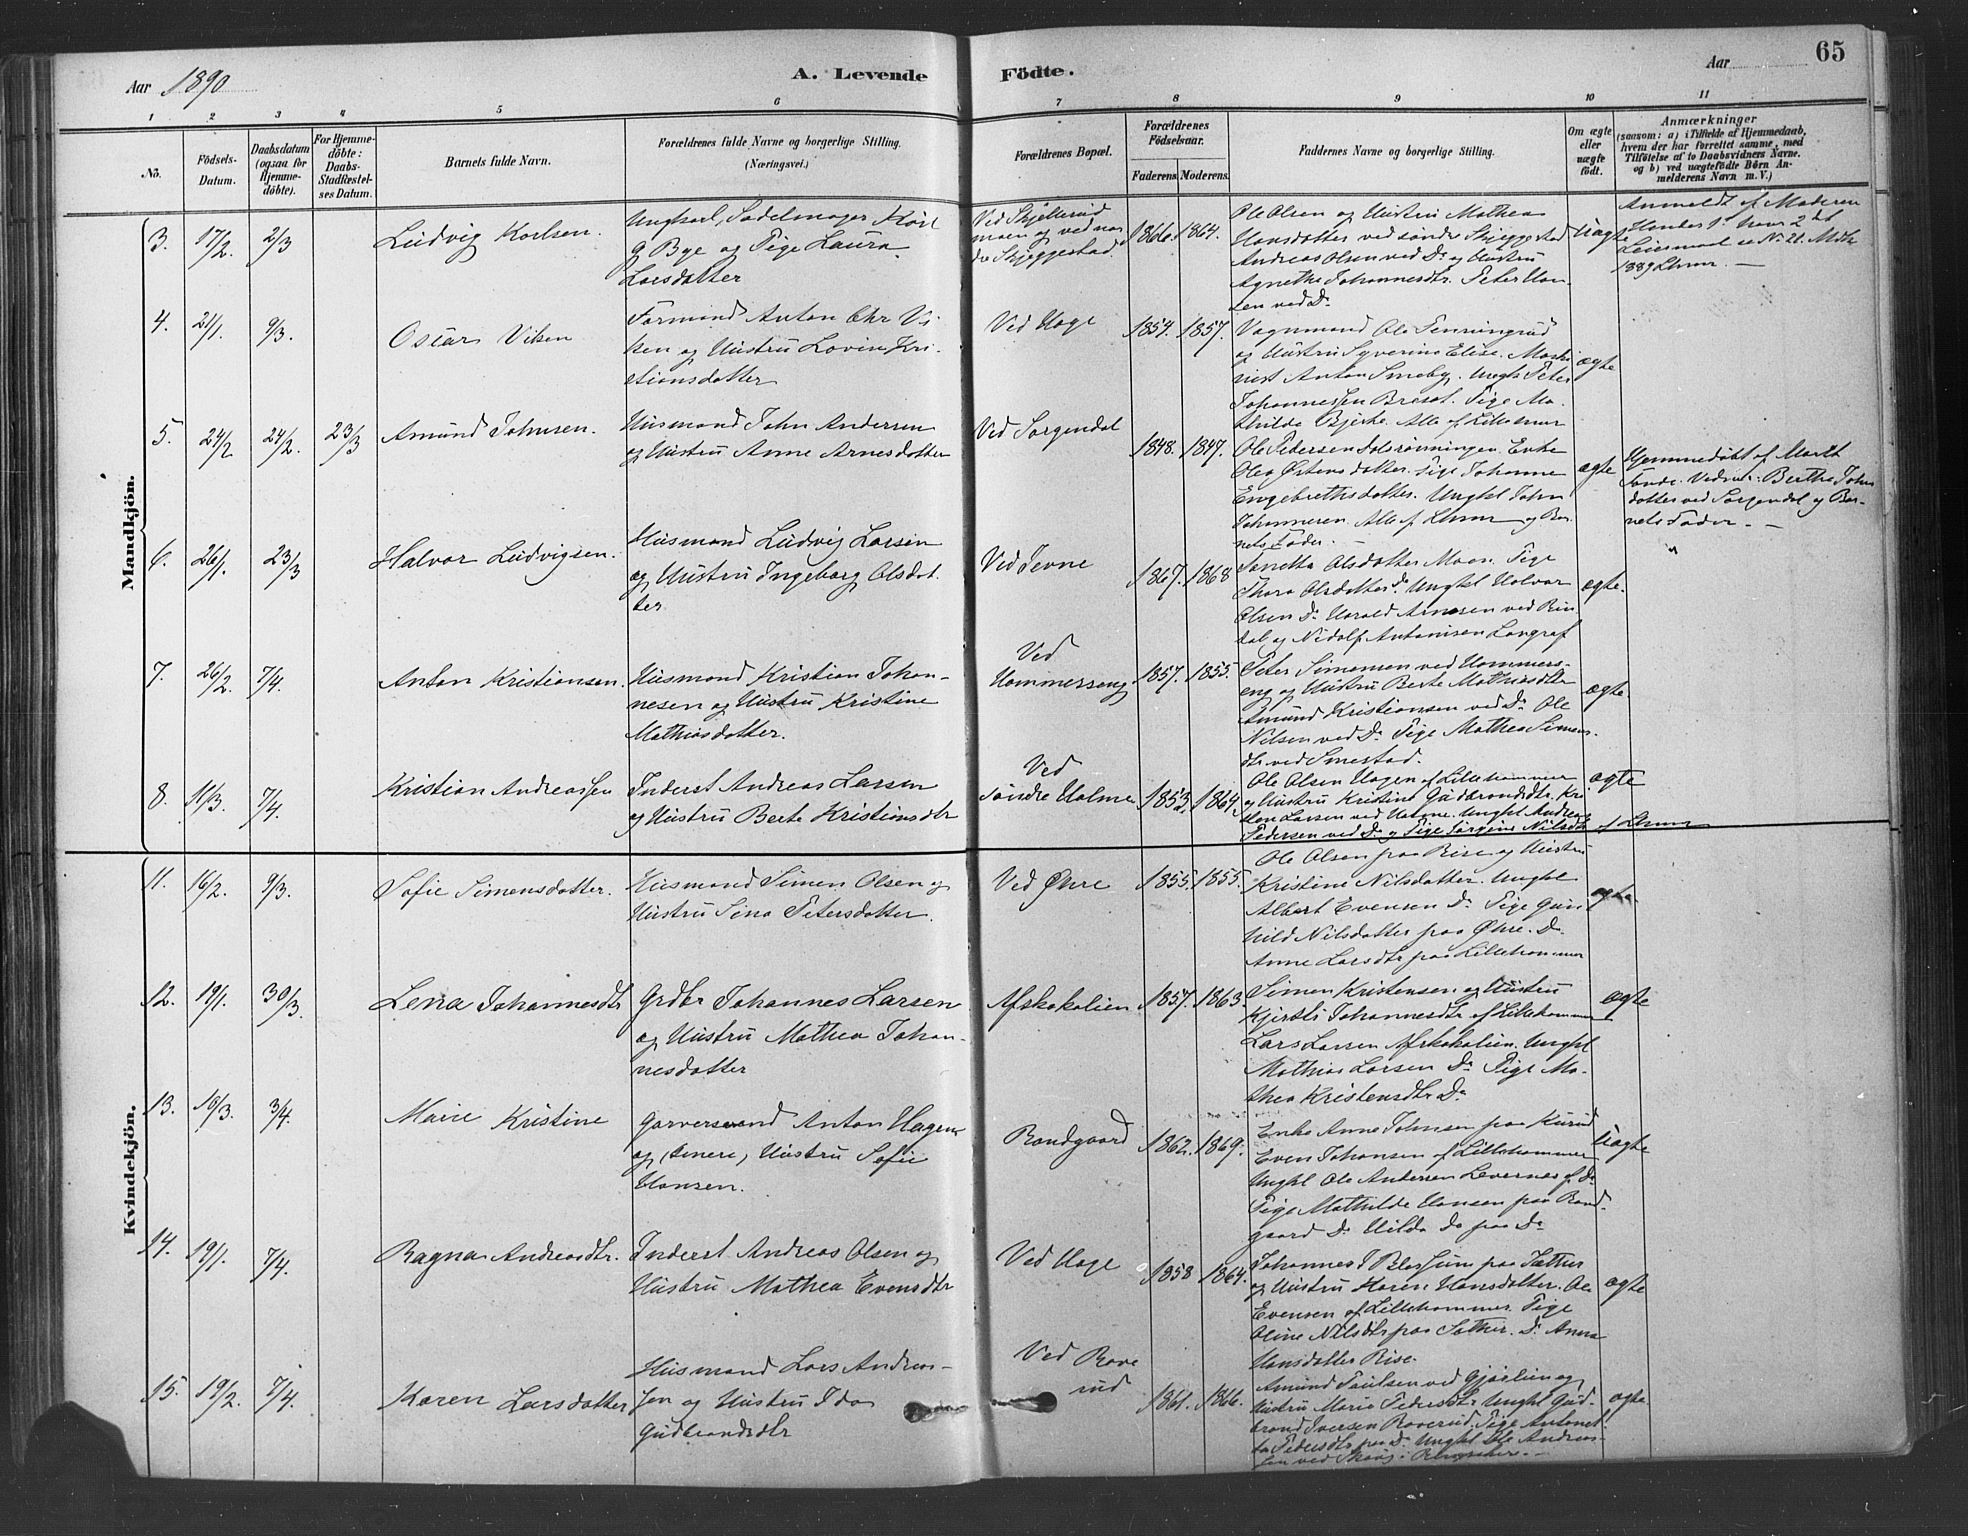 Aar 1890
A. Levende Födte.
Aar
65
1 2 3 4 5 6 7 8 9 10 11
No.
Födsels-
Datum.
Daabsdatum
(ogsaa for
Hjemme-
döbte).
For Hjemme-
döbte:
Daabs-
Stadfæstel-
ses Datum.
Barnets fulde Navn.
Forældrenes fulde Navne og borgerlige Stilling.
(Næringsvei.)
Forældrenes Bopæl.
Forældrenes
Födselsaar.
Faderens. Moderens.
Faddernes Navne og borgerlige Stilling.
Om ægte
eller
uægte
födt.
Anmærkninger
(saasom: a) i Tilfælde af Hjemmedaab,
hvem der har forrettet samme, med
Tilföielse af to Daabsvidners Navne.
og b) ved uægtefödte Börn An-
melderens Navn m. V.)
Mandkjön.
3. 17/2 2/3 Ludvig Karlsen.
Ungkarl, Sadelmager Karl
G Bye og Pige Laura
Larsdatter
Ved Skjellerud
moen og ved nor
dre Skjeggestad
1866. 1864.
Ole Olsen og Hustru Mathea
Hansdatter ved søndre Skjeggestad
Andreas Olsen ved Do og Hustru
Agnethe Johannesdtr. Peter Han-
sen ved Do
Uægte
Anmeldt af Moderen
Hendes 1st hans 2det
Leiermaal se No 21. Mdk
1889 Lhmr. —
4. 21/1. 9/3. Oscar Viken
Formand Anton Chr Vi-
ken og Hustru Lovise Kri-
stiansdatter
Ved Hage
1854. 1857.
Vognmand Ole Tenningrud
og Hustru Syverine Elise. Maski
nist Anton Smeby. Ungk Peter
Johannessen Bresat. Pige Ma-
thilde Bjerke. Alle af Lillehmr
ægte
5. 24/2 24/2. 23/3 Amund Johnsen.
Husmand John Andersen
og Hustru Anne Arnesdatter
Ved Sorgendal
1848. 1847.
Ole Pedersen Enke
Olea Østensdatter. Pige Johanne
Engebrethsdatter. Ungkl John
Johannesen. Alle af Lhmr og Bar-
nets Fader. —
ægte
Hjemmedøbt af Marit
Tande. Vidner: Berthe Johns
datter ved Sorgendal og Bar-
nets Fader. —
6. 26/1. 23/3 Halvor Ludvigsen.
Husmand Ludvig Larsen
og Hustru Ingeborg Olsdat-
ter
Ved Jevne
1867. 1868
Olsdatter Moen. Pige
Thora Olsdatter Do Ungkl Halvor
Olsen Do Harald Arnesen ved Rin
dal og Nidolf Antonisen Langraf
ægte.
7. 26/2. 7/4. Anton Kristiansen.
Husmand Kristian Johan-
nesen og Hustru Kristine
Mathiasdatter.
Ved
Hammerseng
1857. 1855.
Peter Simensen ved Hammers-
eng og Hustru Berte Mathiasdtr
Amund Kristiansen ved Do Ole
Nilsen ved Do Pige Mathea Simens-
dtr ved Smestad.
ægte.
8. 11/3. 7/4. Kristian Andreassen
Inderst Andreas Larsen
og Hustru Berte Kristiansdtr
Ved
Søndre Holme
1853. 1864.
Ole Olsen Hagen af Lillehammer
og Hustru Kristine Gudbrandsdtr. Kri
stian Larsen ved Holme. Ungkl Andreas
Pedersen ved Do og Pige Jørgine Nilsdtr af Lhmr
ægte
Kvindekjön.
11. 16/2. 9/3. Sofie Simensdatter.
Husmand Simen Olsen og
Hustru Sina Petersdatter.
Ved Øhre
1855. 1855.
Ole Olsen paa Rise og Hustru
Kristine Nilsdatter. Ungkl
Albert Evensen Do Pige Gun
hild Nilsdatter paa Øhre. Do
Anne Larsdtr paa Lillehammer
ægte
12. 19/1. 30/3. Lena Johannesdtr
Grdbr Johannes Larsen
og Hustru Mathea Johan-
nesdatter
Afskakalien
1857. 1863.
Simen Kristensen og Hustru
Kjersti Johannesdtr af Lillehammer
Lars Larsen Afskakalien. Ungkl
Mathias Larsen Do Pige Ma-
thea Kristensdtr Do
ægte
13. 16/3. 3/4. Marie Kristine
Garversvend Anton Hagen
og (senere) Hustru Sofie
Hansen.
Randgaard
1862. 1869.
Enke Anne Johnsen paa Kurud
Even Johansen af Lillehammer
Ungkl Ole Andersen Levernes af Do
Pige Mathilde Hansen paa Rand-
gaard Do Hilda Do paa Do
Uægte
14. 19/1. 7/4. Ragna Andreasdtr.
Inderst Andreas Olsen og
Hustru Mathea Evensdtr
Ved Hage
1858 1864.
Johannes J paa Sæther
og Hustru Karen Hansdatter. Ole
Evensen af Lillehammer. Pige
Oline Nilsdtr paa Sæther. Do Anna
Hansdatter Rise.
ægte
15. 19/2. 7/4. Karen Larsdatter
Husmand Lars Andreas-
sen og Hustru Ida
Gudbrandsdtr
Ved Rove
rud
1861. 1866.
Amund Paulsen ved Gjørlien og
Hustru Marie Pedersdtr Ungkl Gud-
brand Iversen Roverud. Pige Antonet
ta Pedersdtr paa Do Ungkl Ole Andreas-
sen ved Skoug i Ringsaker. —
ægte